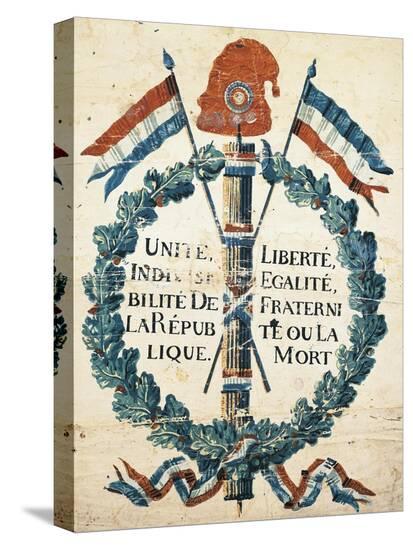 UNITÉ,
INDIVISI
BILITÉ DE
LA RÉPUB
LIQUE.
LIBERTÉ,
EGALITÉ,
FRATERNI
TÉ OU LA
MORT